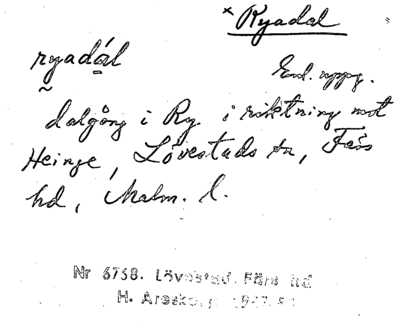 × Ryadal
ryadál
End. uppg.
dalgång i Ry i riktning mot
Heinge, Lövestads sn, Färs
hd, Malm. l.
Nr 6768. Lövestad. Färs hd
H. Areskog